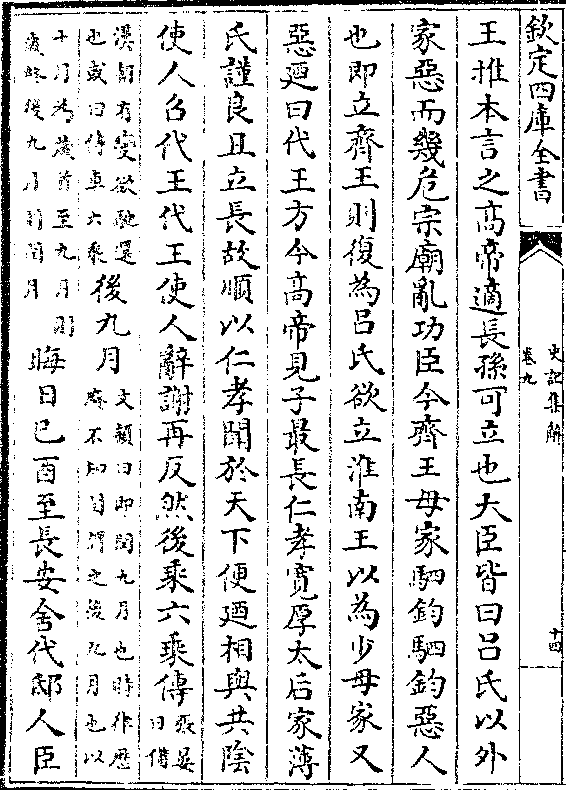 欽定四庫全書
史記集解
卷九
十四
王推本言之髙帝適長孫可立也大臣皆曰吕氏以外
家惡而幾危宗廟亂功臣今齊王母家駟鈞駟鈞惡人
也即立齊王則復為吕氏欲立淮南王以為少母家又
惡廼曰代王方今髙帝見子最長仁孝寛厚太后家薄
氏謹良且立長故順以仁孝聞於天下便廼相與共陰
使人召代王代王使人辭謝再反然後乘六乘傳張晏曰備
漢朝有變欲馳還也或曰傳車六乘後九月文頴曰即閏九月也時律歴廢不知閏謂之後九月也以
十月為歲首至九月則歲終後九月則閏月晦日己酉至長安舍代邸大臣